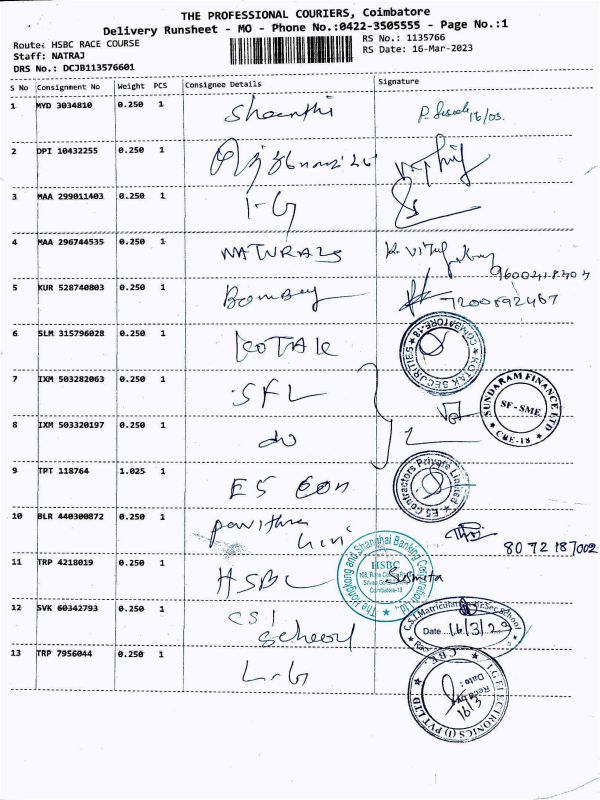 THE PROFESSIONAL COURIERS, Coimbatore
Delivery Runsheet - MO - Phone No.:0422-3505555 - Page No.:1
Route: HSBC RACE COURSE
RS No.: 1135766
Staff: NATRAJ
RS Date: 16-Mar-2023
DRS No.: DCJB113576601
S No Consignment No Weight PCS Consignee Details Signature
1 MYD 3034810 0.250 1 Shanthi 16/03
2 DPI 10432255 0.250 1
3 MAA 299011403 0.250 1
4 MAA 296744535 0.250 1 NATURALS
5 KUR 528740803 0.250 1 Bombay 7200892467
6 SLM 315796028 0.250 1 KOTAK
★ KOTAK SECURITIES ★ COIMBATORE-18
7 IXM 503282063 0.250 1 SFL
SUNDARAM FINANCE LTD
SF - SME
★ CBE-18 ★
8 IXM 503320197 0.250 1 do
9 TPT 118764 1.025 1 E5 Con
E5 contractors Private Limited ★
10 BLR 440300872 0.250 1 pavithra
8072187002
11 TRP 4218019 0.250 1 HSBC
The Hongkong and Shanghai Banking Corporation Ltd. ★
HSBC
Coimbatore-18
Susmita
12 SVK 60342793 0.250 1 CSI
School
C.S.I Matriculation Hr.Sec.School
Date 16/3/2
13 TRP 7956044 0.250 1 L-G
LG ELECTRONICS (I) PVT LTD ★ CBE ★
Date :
16/3